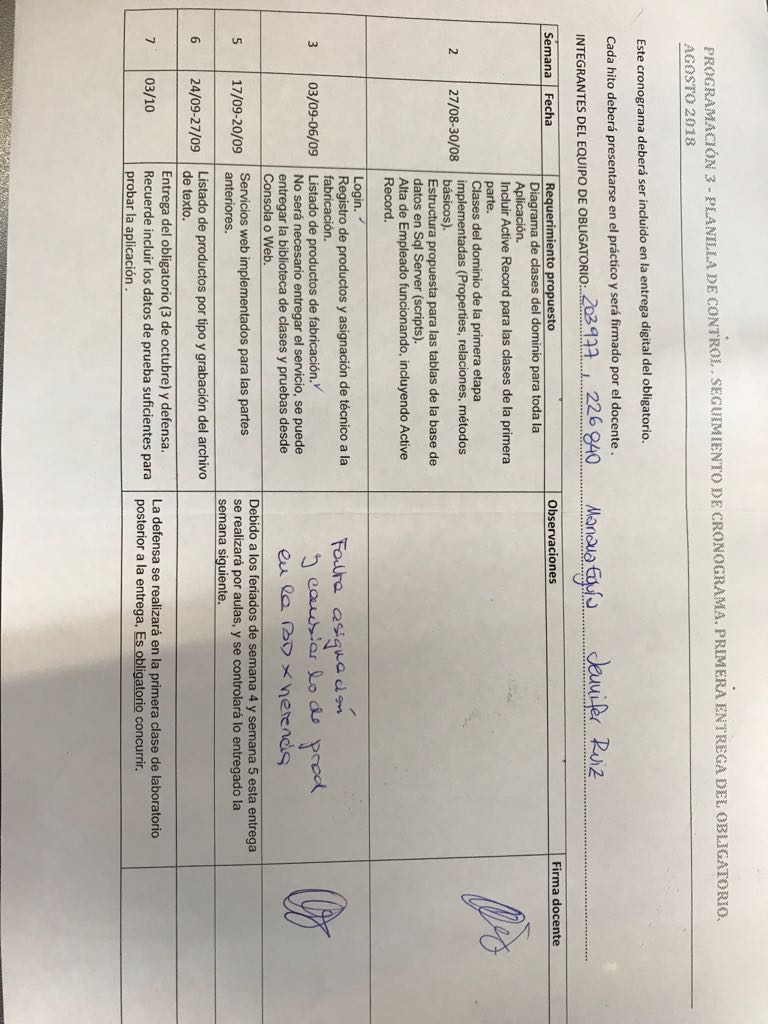 PROGRAMACIÓN 3 - PLANILLA DE CONTROL. SEGUIMIENTO DE CRONOGRAMA. PRIMERA ENTREGA DEL OBLIGATORIO.
AGOSTO 2018
Este cronograma deberá ser incluido en la entrega digital del obligatorio.
Cada hito deberá presentarse en el práctico y será firmado por el docente.
INTEGRANTES DEL EQUIPO DE OBLIGATORIO: 203977, 226840 Jennifer Ruiz
Semana Fecha Requerimiento propuesto Observaciones Firma docente
2 27/08-30/08
Diagrama de clases del dominio para toda la
Aplicación.
Incluir Active Record para las clases de la primera
parte.
Clases del dominio de la primera etapa
implementadas (Properties, relaciones, métodos
básicos).
Estructura propuesta para las tablas de la base de
datos en Sql Server (scripts).
Alta de Empleado funcionando, incluyendo Active
Record.
3 03/09-06/09
Login. ✓
Registro de productos y asignación de técnico a la
fabricación.
Listado de productos de fabricación. ✓
No será necesario entregar el servicio, se puede
entregar la biblioteca de clases y pruebas desde
Consola o Web.
Falta asignación
y cambiar lo de prod
en la BD x herencia
5 17/09-20/09
Servicios web implementados para las partes
anteriores.
Debido a los feriados de semana 4 y semana 5 esta entrega
se realizará por aulas, y se controlará lo entregado la
semana siguiente.
6 24/09-27/09
Listado de productos por tipo y grabación del archivo
de texto.
7 03/10
Entrega del obligatorio (3 de octubre) y defensa.
Recuerde incluir los datos de prueba suficientes para
probar la aplicación.
La defensa se realizará en la primera clase de laboratorio
posterior a la entrega, Es obligatorio concurrir.